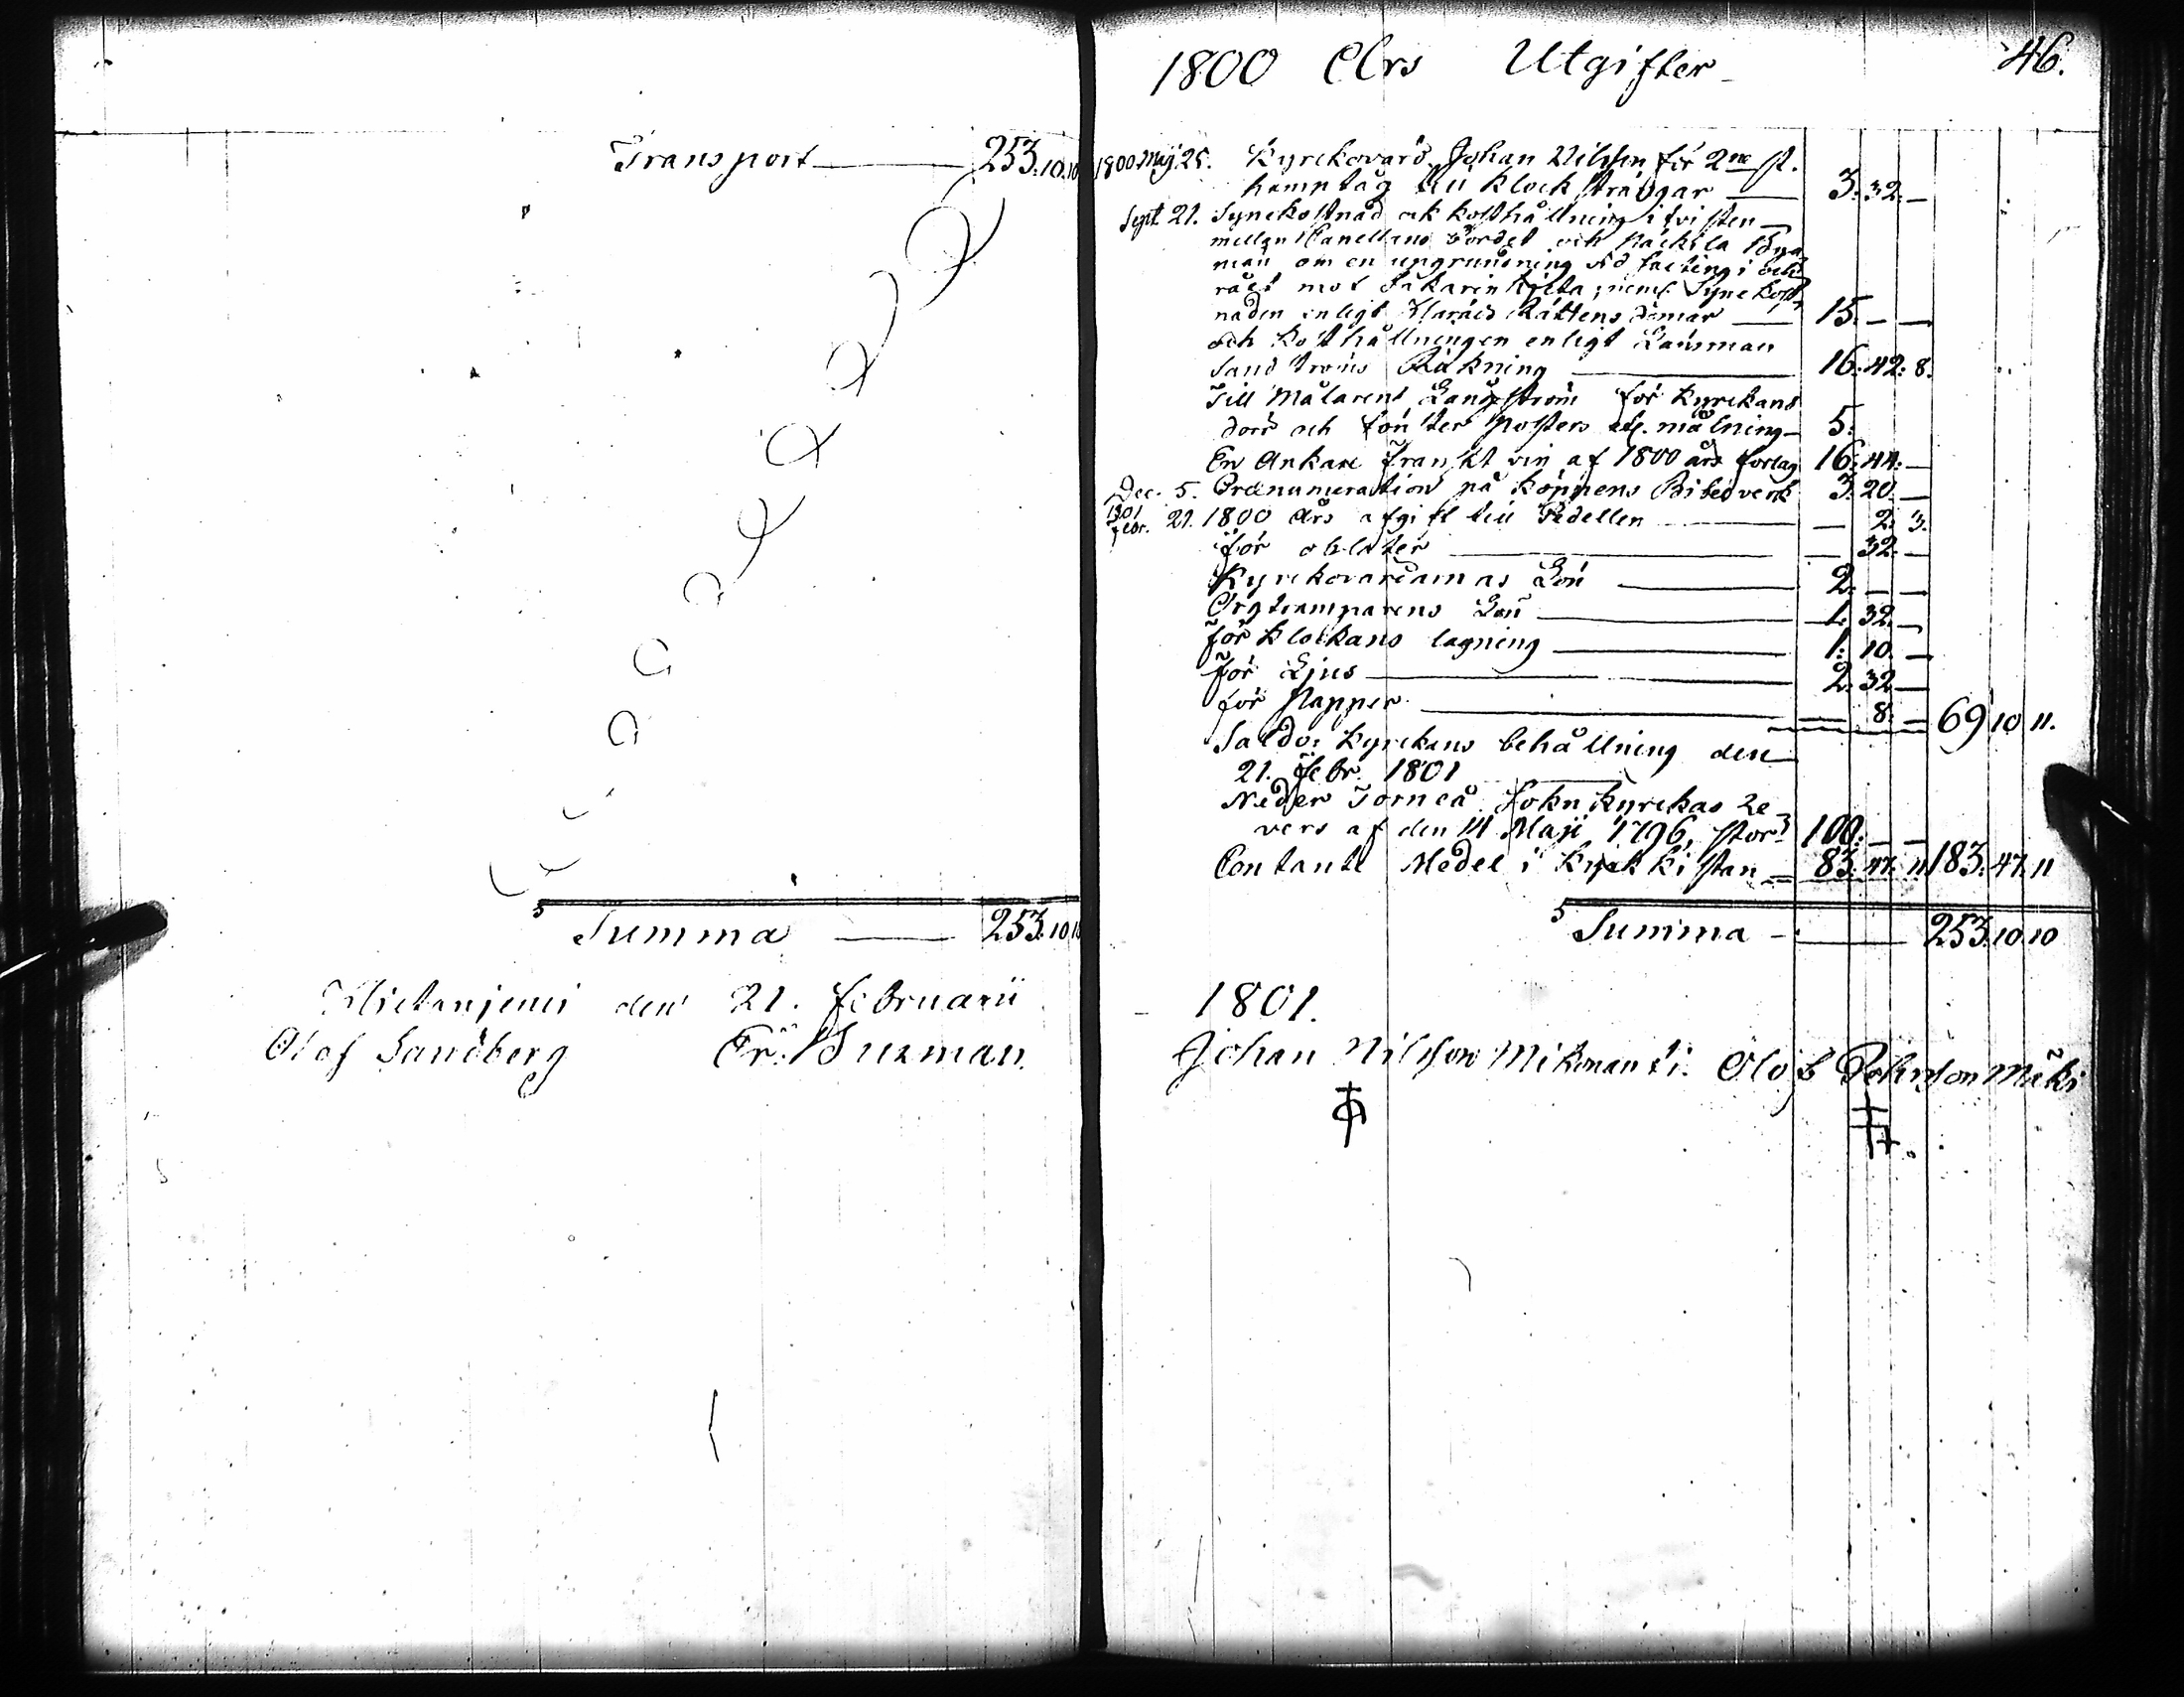 Transport 253. 10. 10
Summa 253. 10 10
Hietaniemi den 21. Februarii
Olof Sandberg Er. Burman.
1800 Års Utgifter 46.
1800 Maji 25. Kyrckovärd. Johan Nilsson för 2ne st.
hamptåg till klocksträngar 3. 32. —
Sept. 21. Synekostnad och kosthållning i tvisten
mellan Capellans Bordet och Päckila Bya
män om en upgrundning
mot neml. Synekost
naden enligt Härads Rättens domar 15. — —
och kosthållningen enligt Länsman
Sandströms Räkning 16. 42. 8.
Till Målaren Långström för kyrckans
dörr och fönster posters etc. målning 5.
En Ankare franskt vin af 1800 års förlag 16. 44. —
Dec. 5. Prænumeration på Köppens Bibelverk 3. 20. —
1801
Febr. 21. 1800 Års afgift till Pedellen — 2. 3.
för oblater — 32. —
Kyrckovärdarnas Lön 2. — —
Orgtramparens Lön 1. 32. —
för klockans lagning 1. 10. —
för Ljus 2. 32 —
för Papper — 8. — 69 10 11.
Saldo: kyrckans behållning den
21. Febr. 1801
Neder Torneå Sokn kyrckas Re
vers af den 11 Maji 1796, stor 100. — —
Contante Medel i kyrckkistan 83. 47. 11 183. 47. 11
Summa 253. 10 10
1801.
Johan Nilsson Mikmanti. Olof Johnson Mäki